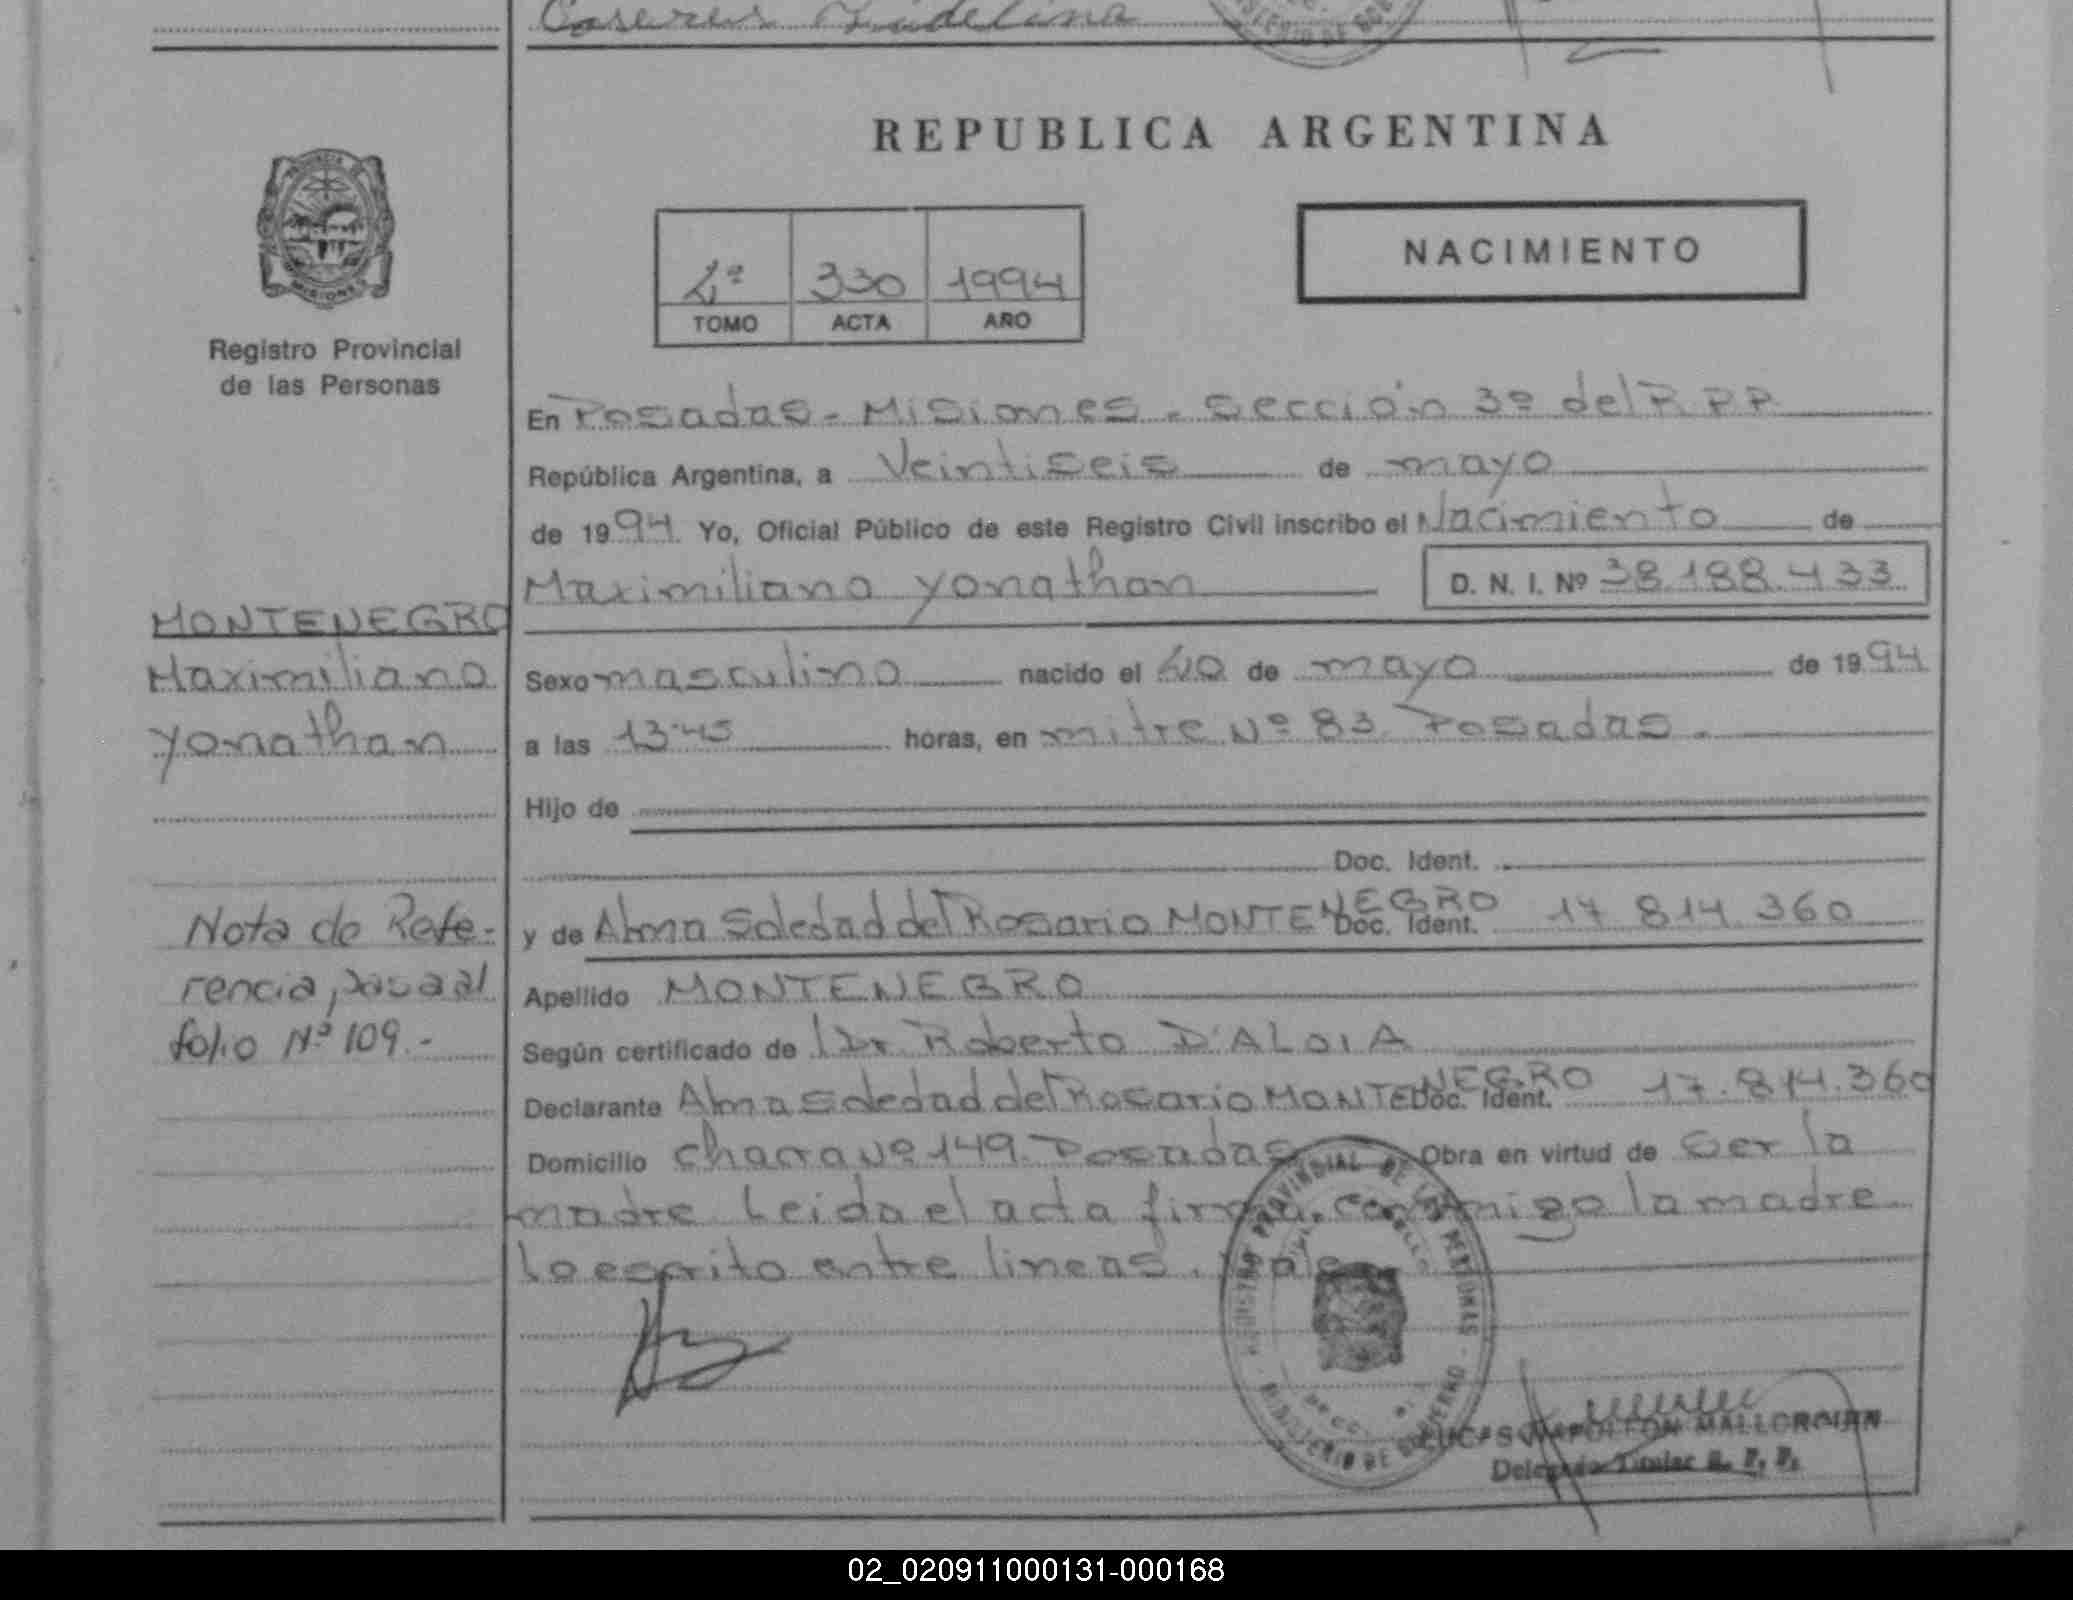 Caseres Fidelina
REPUBLICA ARGENTINA
PROVINCIA DE
MISIONES
Registro Provincial
de las Personas
330 1994
TOMO ACTA AÑO
NACIMIENTO
En Posadas - Misiones - Sección 3º del R.P.P.
República Argentina, a Veintiseis de mayo
de 1994 Yo, Oficial Público de este Registro Civil inscribo el Nacimiento de
Maximiliano Yonathan D. N. I. Nº 38.188.433
MONTENEGRO
Maximiliano
Yonathan
Sexo masculino nacido el de mayo de 1994
a las 13:45 horas, en mitre Nº 83. Posadas.
Hijo de
Doc. Ident.
Nota de Refe-
rencia, pasa al
folio Nº 109.-
y de Alma Soledad del Rosario MONTENEGRO Doc. Ident. 17 814 360
Apellido MONTENEGRO
Según certificado de Dr. Roberto D'ALOIA
Declarante Alma Soledad del Rosario MONTENEGRO Doc. Ident. 17.814.360
Domicilio Chacra Nº 149. Posadas Obra en virtud de Ser la
madre Leida el acta firma conmigo la madre
Lo escrito entre lineas. Vale
REGISTRO PROVINCIAL DE LAS PERSONAS
MINISTERIO DE GOBIERNO
NAPOLEON
Delegado Titular R. P. P.
02_020911000131-000168